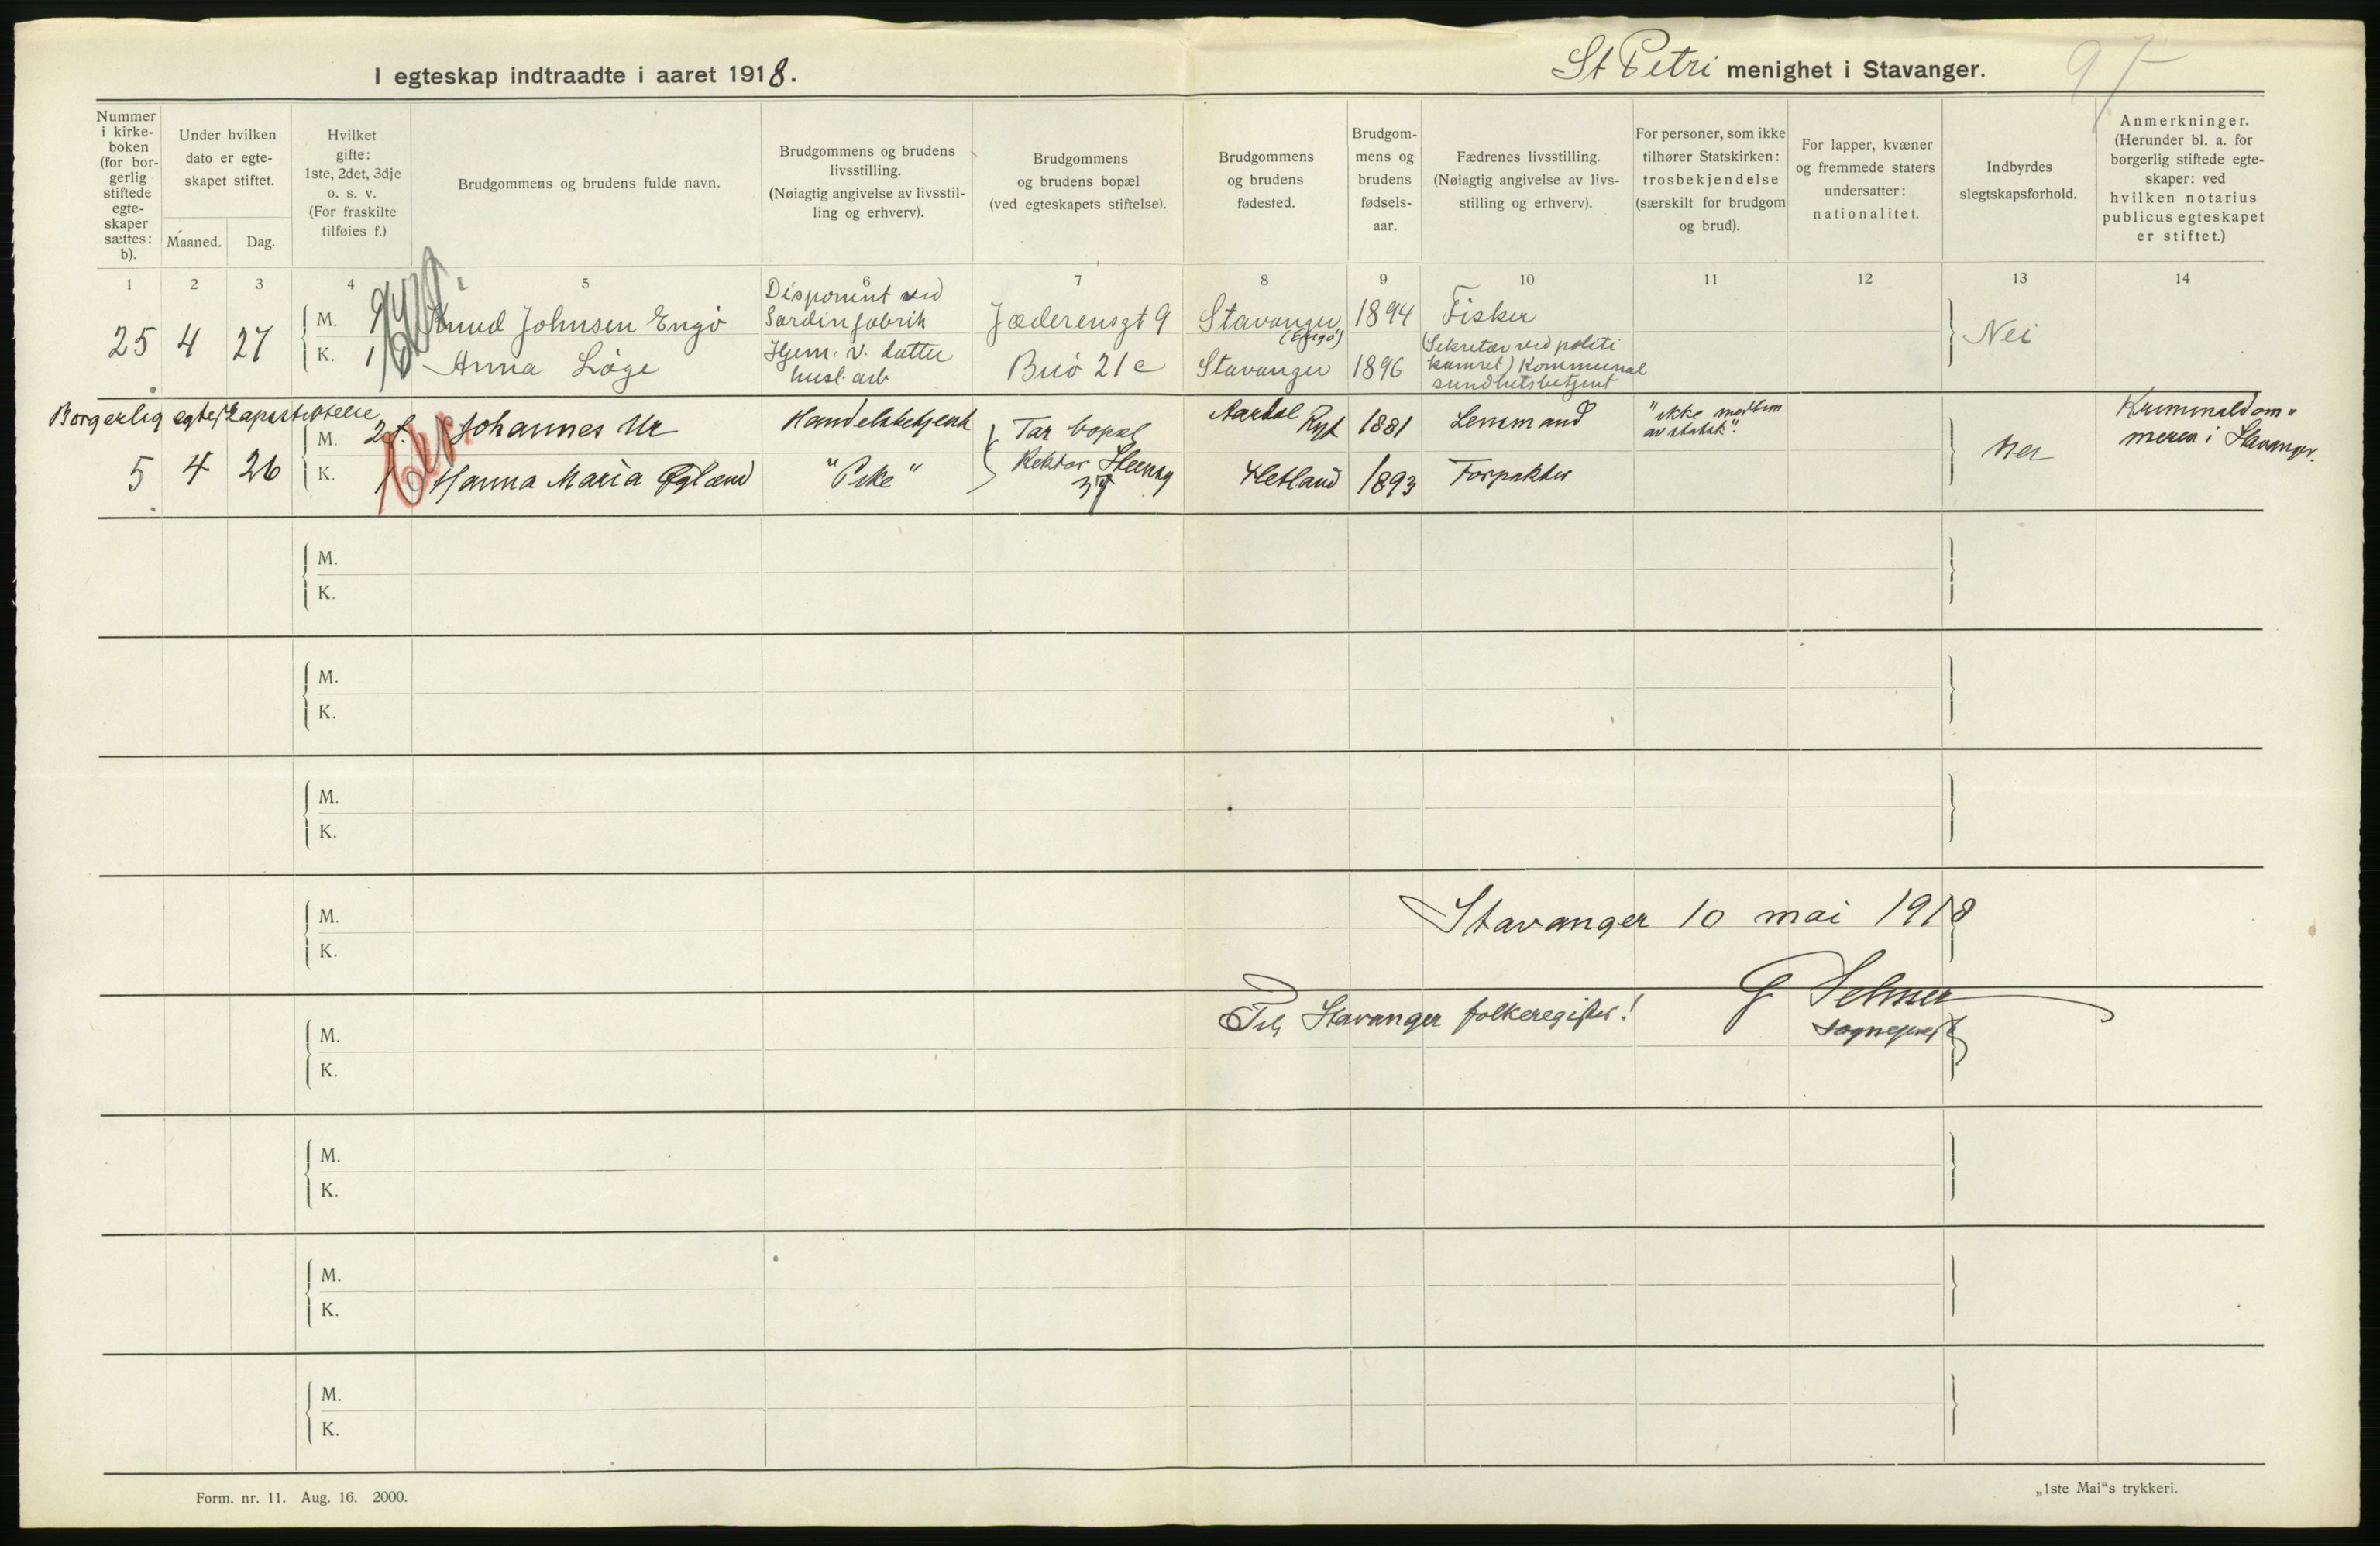 I egteskap indtraadte i aaret 1918.
St Petri menighet i Stavanger.
97
Nummer i kirke-boken (for bor-gerlig stiftede egte-skaper sættes: b).
Under hvilken dato er egte-skapet stiftet.
Maaned. Dag.
Hvilket gifte: 1ste, 2det, 3dje o. s. v. (For fraskilte tilføies f.)
Brudgommens og brudens fulde navn.
Brudgommens og brudens livsstilling. (Nøiagtig angivelse av livsstil-ling og erhverv).
Brudgommens og brudens bopæl (ved egteskapets stiftelse).
Brudgommens og brudens fødested.
Brudgom-mens og brudens fødsels-aar.
Fædrenes livsstilling. (Nøiagtig angivelse av livs-stilling og erhverv).
For personer, som ikke tilhører Statskirken: trosbekjendelse (særskilt for brudgom og brud).
For lapper, kvæner og fremmede staters undersatter: nationalitet.
Indbyrdes slegtskapsforhold.
Anmerkninger. (Herunder bl. a. for borgerlig stiftede egte-skaper: ved hvilken notarius publicus egteskapet er stiftet.)
1 2 3 4 5 6 7 8 9 10 11 12 13 14
25 4 27
M. 1 Knud Johnsen Engø Disponent ved Sardinfabrik Jæderensgt 9 Stavanger (Engø) 1894 Fisker
K. 1 Anna Løge Hjem. v. datter husl. arb Buø 21 c Stavanger 1896 (Sekretær ved politi kamret) Kommunal sundhetsbetjent
Nei
Borgerlig egteskapsstiftelse
5 4 26
M. 2 f. Johannes Ur Handelsbetjent Aardal Ryf 1881 Lensmand "ikke medlem av statsk".
Tar bopæl Rektor Steensg 37
K. 1 Hanna Maria Egland "Pike" Hetland 1893 Forpakter
Nei
Kriminaldom-meren i Stavanger.
M.
K.
M.
K.
M.
K.
M.
K.
Stavanger 10 mai 1918
G Selmer
sogneprest
Til Stavanger folkeregister!
M.
K.
M.
K.
M.
K.
M.
K.
Form. nr. 11. Aug. 16. 2000.
„1ste Mai“s trykkeri.